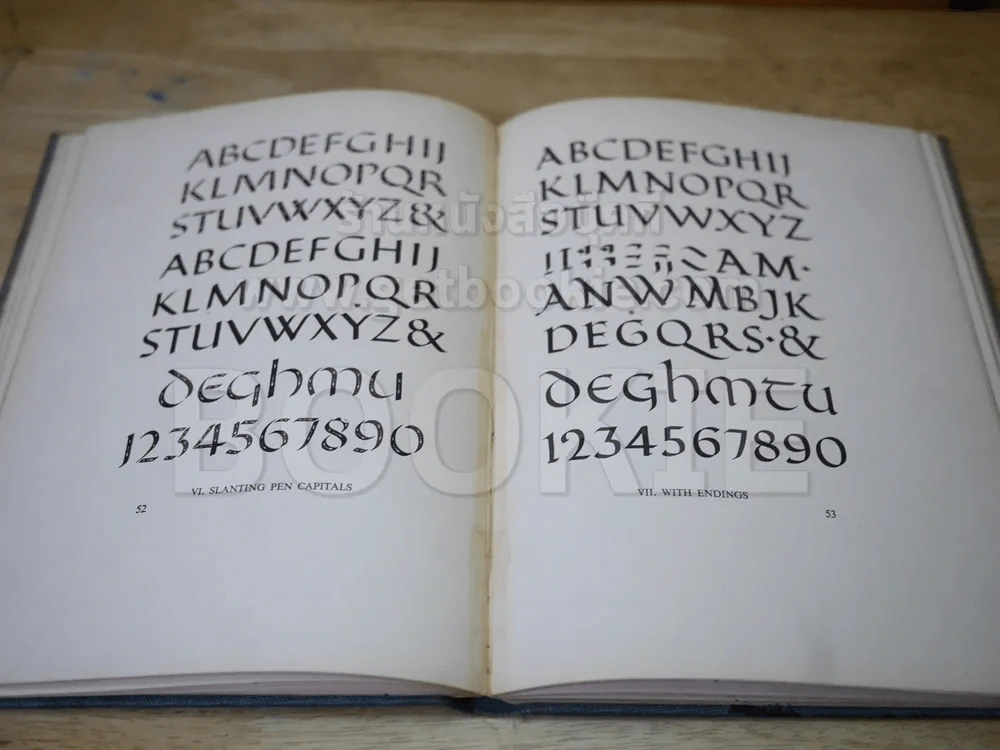 ABCDEFGHIJ
KLMNOPQR
STUVWXYZ&
ABCDEFGHIJ
KLMNOPQR
STUVWXYZ&
DEGHMU
1234567890
VI. SLANTING PEN CAPITALS
52
ABCDEFGHIJ
KLMNOPQR
STUVWXYZ
AM·
ANWMBJK
DEGQRS·&
DEGHMTU
1234567890
VII. WITH ENDINGS
53
BOOKIE